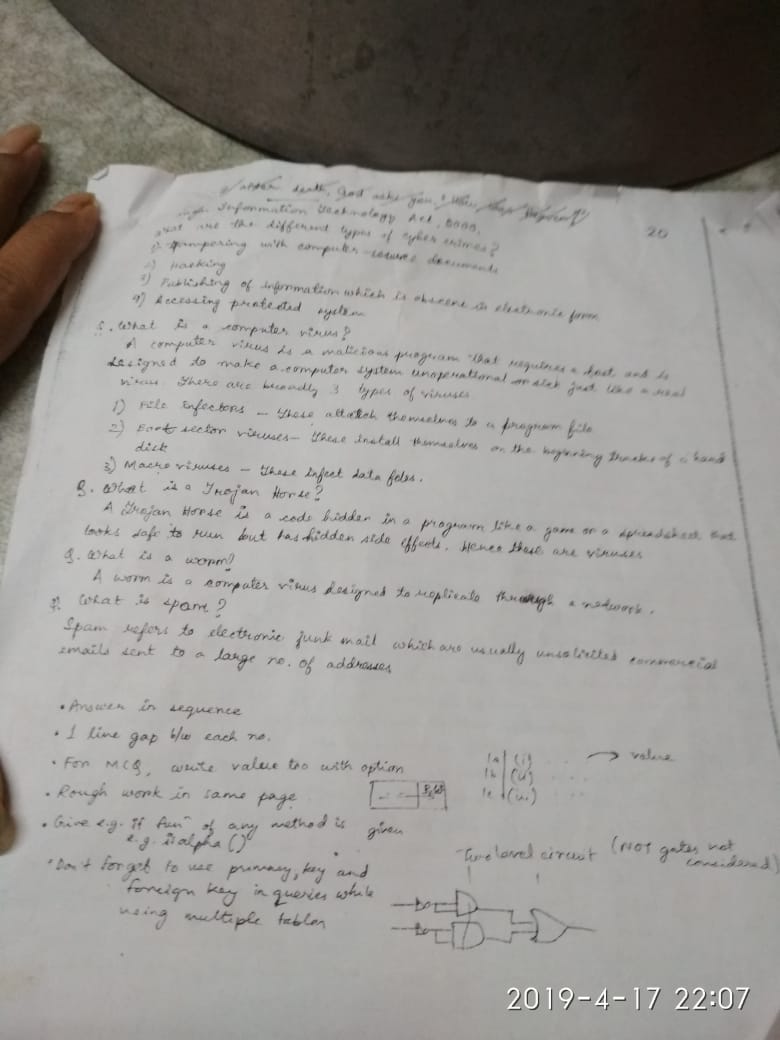 after death, God asks you, " How
Information Technology Act, 2000.
20
what are the different types of cyber crimes?
1) Tampering with computer source documents
2) Hacking
3) Publishing of information which is obscene in electronic form
4) Accessing protected system
Q. What is a computer virus?
A computer virus is a malicious program that requires a host and is
designed to make a computer system unoperational or sick just like a real
virus. There are broadly 3 types of viruses
1) File Infectors – These attatch themselves to a program file
2) Boot sector viruses – These install themselves on the beginning tracks of a hard
disk
3) Macro viruses – These infect data files.
Q. What is a Trojan Horse?
A Trojan Horse is a code hidden in a program like a game or a spreadsheet that
looks safe to run but has hidden side effects. Hence these are viruses
Q. What is a worm?
A worm is a computer virus designed to replicate through a network.
Q. What is spam?
Spam refers to electronic junk mail which are usually unsolicited commercial
emails sent to a large no. of addresses
• Answer in sequence
• 1 line gap b/w each no.
• For MCQ, write value too with option
1a (i) ... → value
1b (ii) ...
1c (iii)
• Rough work in same page
R.W
• Give e.g. if funⁿ of any method is given
e.g. isalpha ()
• Don't forget to use primary key and
foreign key in queries while
using multiple tables
Two level circuit (NOT gates not
considered)
2019-4-17 22:07